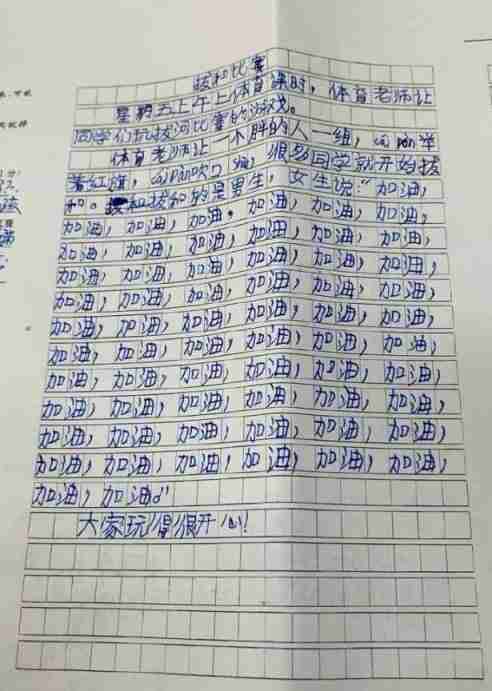 拔和比赛
星期五上午上体育课时，体育老师让
同学们玩拔河比赛的游戏。
体育老师让一个胖的人一组，举
着红旗，吹口，很多同学就开始拔
和。拔和的是男生，女生说：“加油，
加油，加油，加油，加油，加油，加油，
加油，加油，加油，加油，加油，加油，
加油，加油，加油，加油，加油，加油，
加油，加油，加油，加油，加油，加油，
加油，加油，加油，加油，加油，加油，
加油，加油，加油，加油，加油，加油，
加油，加油，加油，加油，加油，加油，
加油，加油，加油，加油，加油，加油，
加油，加油，加油，加油，加油，加油，
加油，加油，加油，加油，加油，加油，
加油，加油。”
大家玩得很开心！